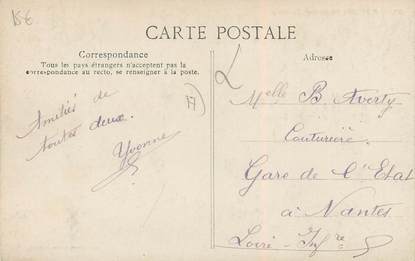 15€
CARTE POSTALE
Correspondance
Tous les pays étrangers n'acceptent pas la
correspondance au recto, se renseigner à la poste.
Amitiés de
toutes deux.
Yvonne
Adresse
Melle B Averty
Couturière
Gare de l'Etat
à Nantes
Loire-Infre